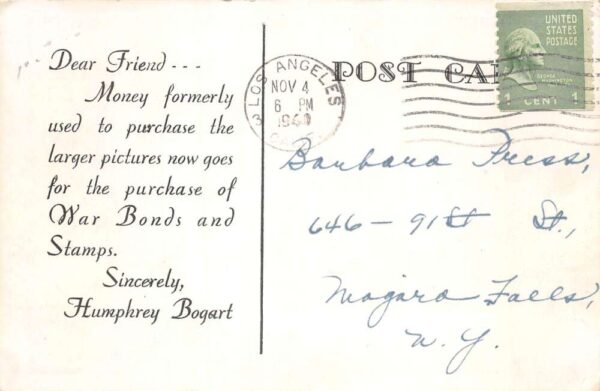 Dear Friend---
Money formerly
used to purchase the
larger pictures now goes
for the purchase of
War Bonds and
Stamps.
Sincerely,
Humphrey Bogart
POST CA
LOS ANGELES
NOV 4
6 PM
3
UNITED
STATES
POSTAGE
GEORGE
WASHINGTON
1 CENT 1
Barbara Press,
646-91st St.,
Niagara Falls,
N.Y.